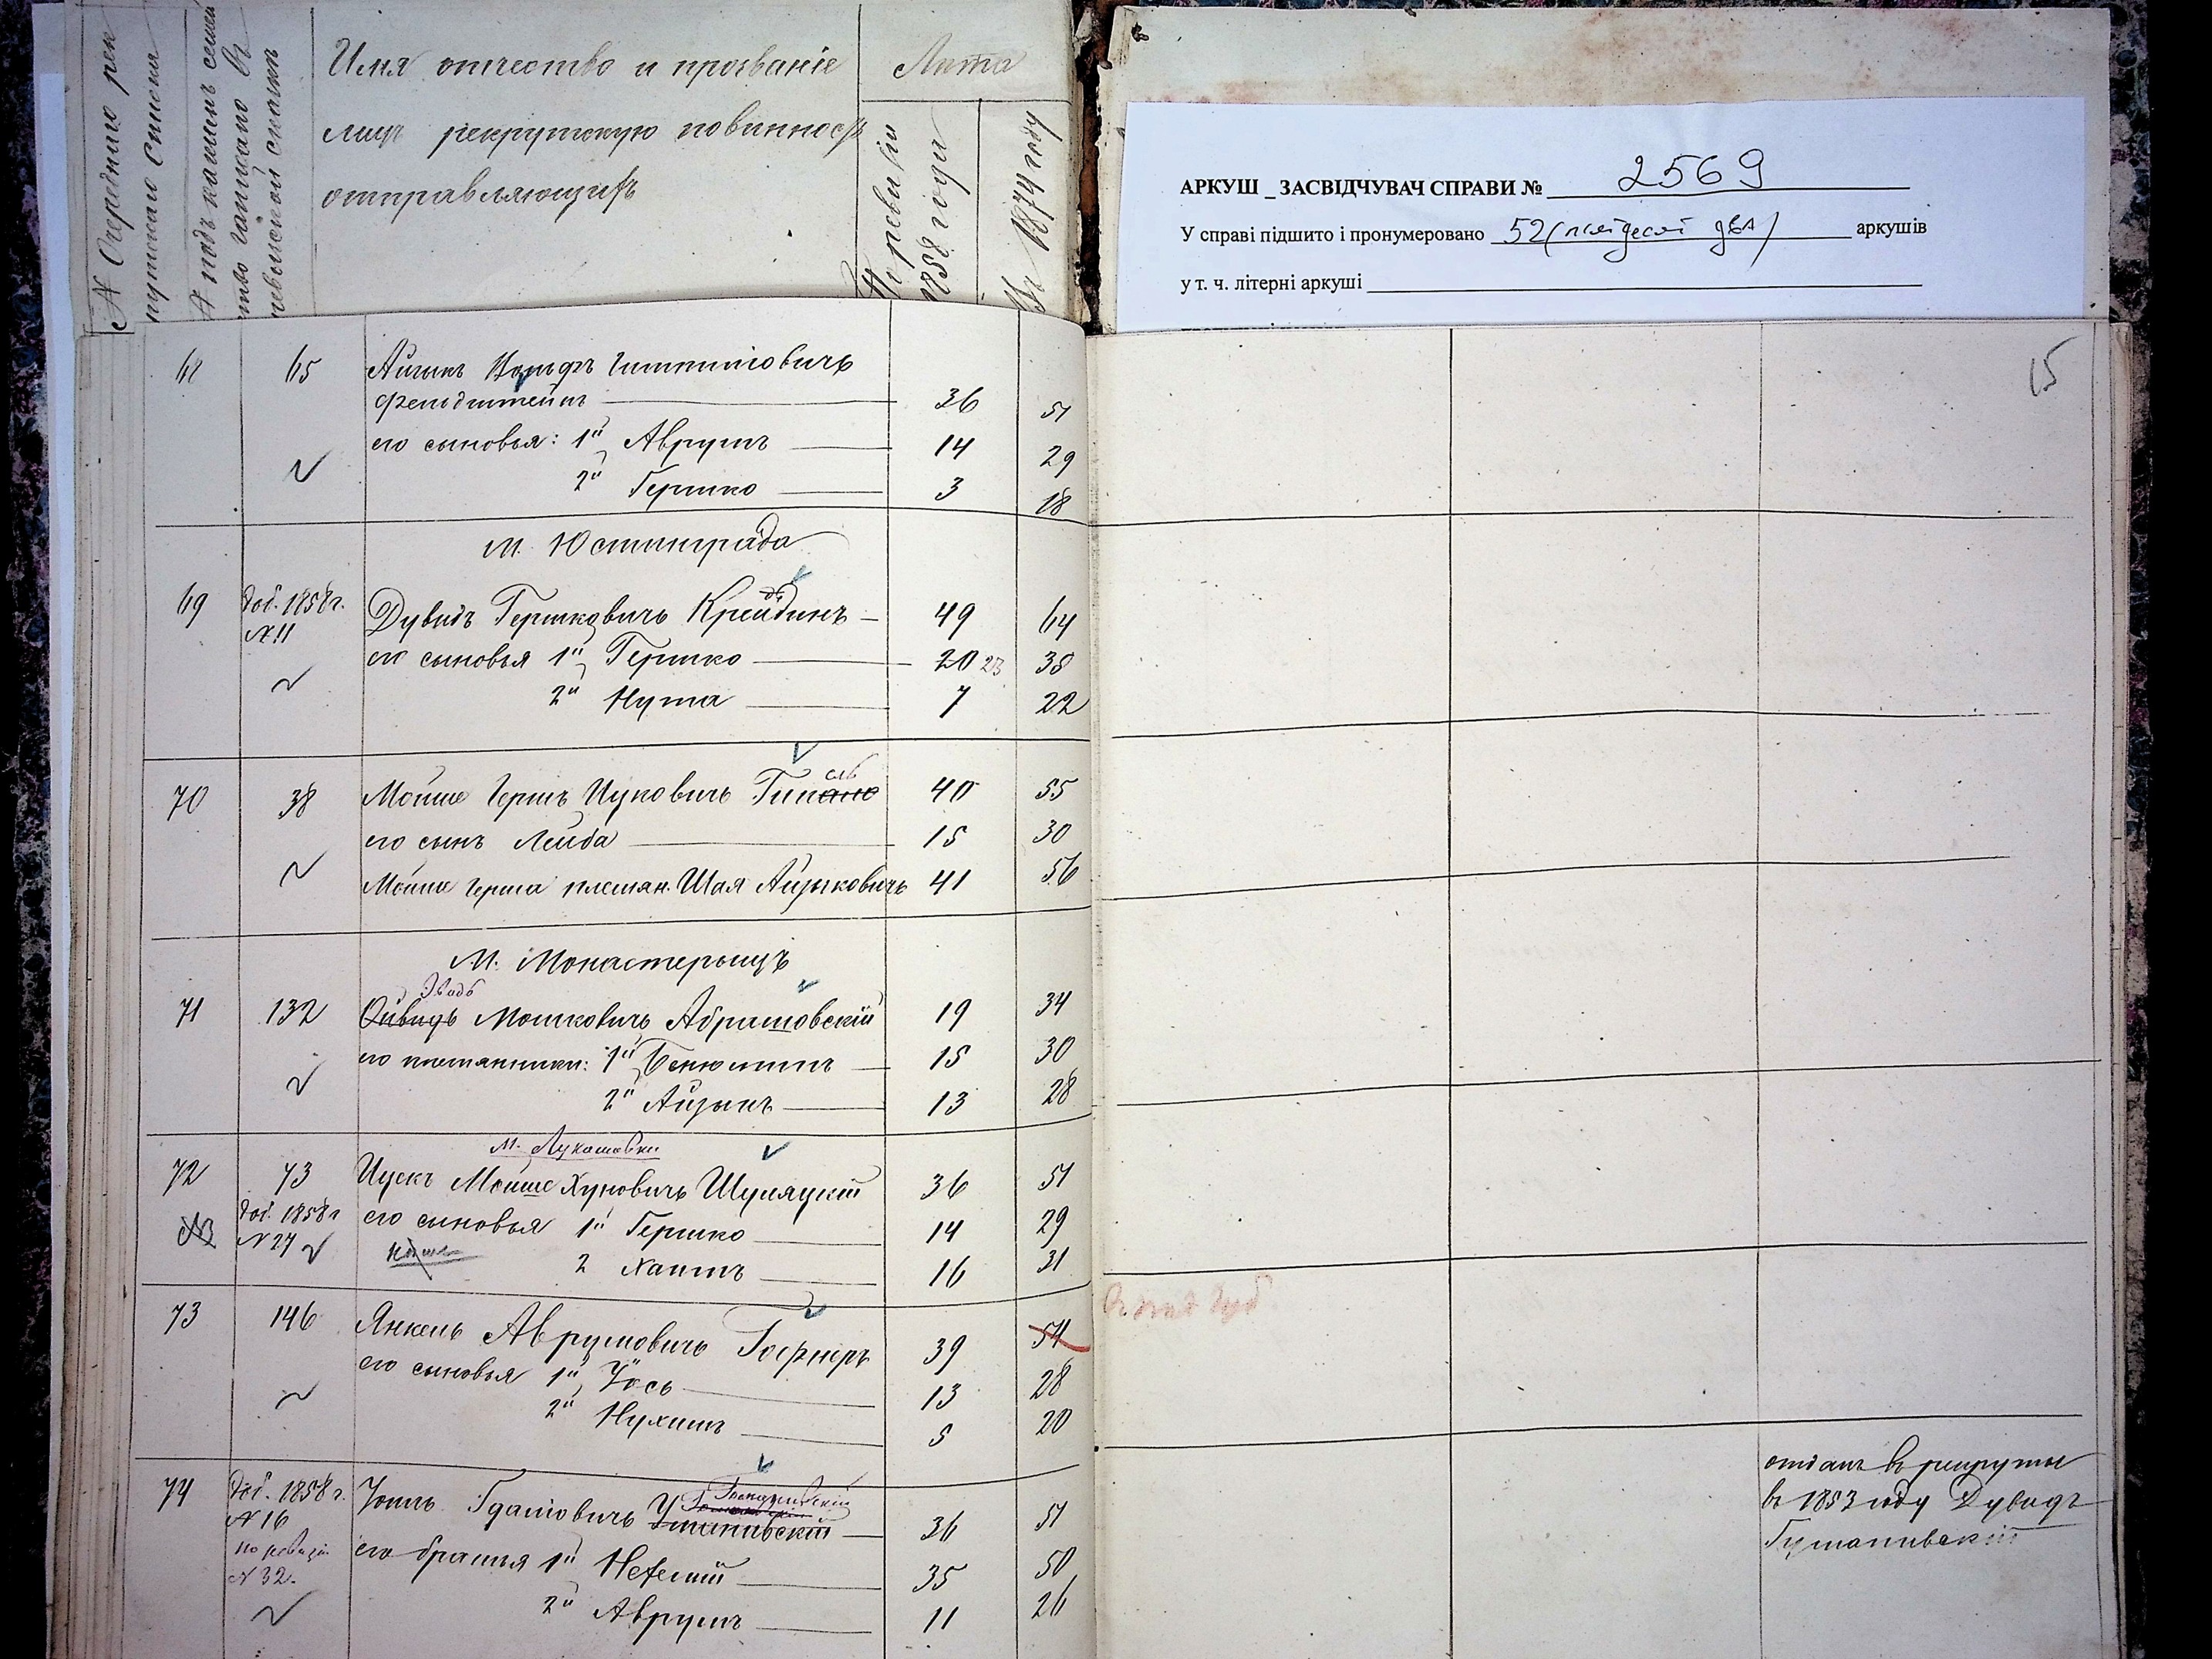 № Очереднаго рек
рутскаго списка
№ подъ какимъ семей
ство записано въ
ревизской сказкѣ
Имя отчество и прозваніе
лицъ рекрутскую повинность
отправляющихъ
Лѣта
По ревизіи
1858 года
Въ 1874 году
АРКУШ _ ЗАСВІДЧУВАЧ СПРАВИ № 2569
У справі підшито і пронумеровано 52 (пятдесят два) аркушів
у т. ч. літерні аркуші
15
68 65 Айзикъ Вольфъ
Фельдштейнъ 36 51
его сыновья: 1й Аврумъ 14 29
2й Гершко 3 18
М. Юстинграда
69 доб. 1858 г. Дувидъ Гершковичъ Крейдинъ 49 64
№ 11
его сыновья 1й Гершко 20 23 38
2й Нута 7 22
70 38 Мойше Гершъ Ицковичъ 40 55
его сынъ Лейба 15 30
Мойше Герша племян. Шая Айзыковичъ 41 56
М. Монастерыщъ
71 132 Мошковичъ Абрашовскій 19 34
его племянники: 1й Бенюминъ 15 30
2й Айзыкъ 13 28
М. Лукашовки
72 73 Ицекъ Мойше Хуновичъ Шуляцкій 36 51
доб. 1858 г его сыновья 1й Гершко 14 29
№ 27
2 Хаимъ 16 31
73 146 Янкель Аврумовичъ Гофнеръ 39 54
его сыновья 1й Іось 13 28
2й Нухимъ 5 20
74 доб. 1858 г. Гдаліовичъ 36 51
№ 16
по ревизіи
№ 32.
его братья 1й Нехемій 35 50
2й Аврумъ 11 26
отданъ въ рекруты
въ 1853 году Дувидъ